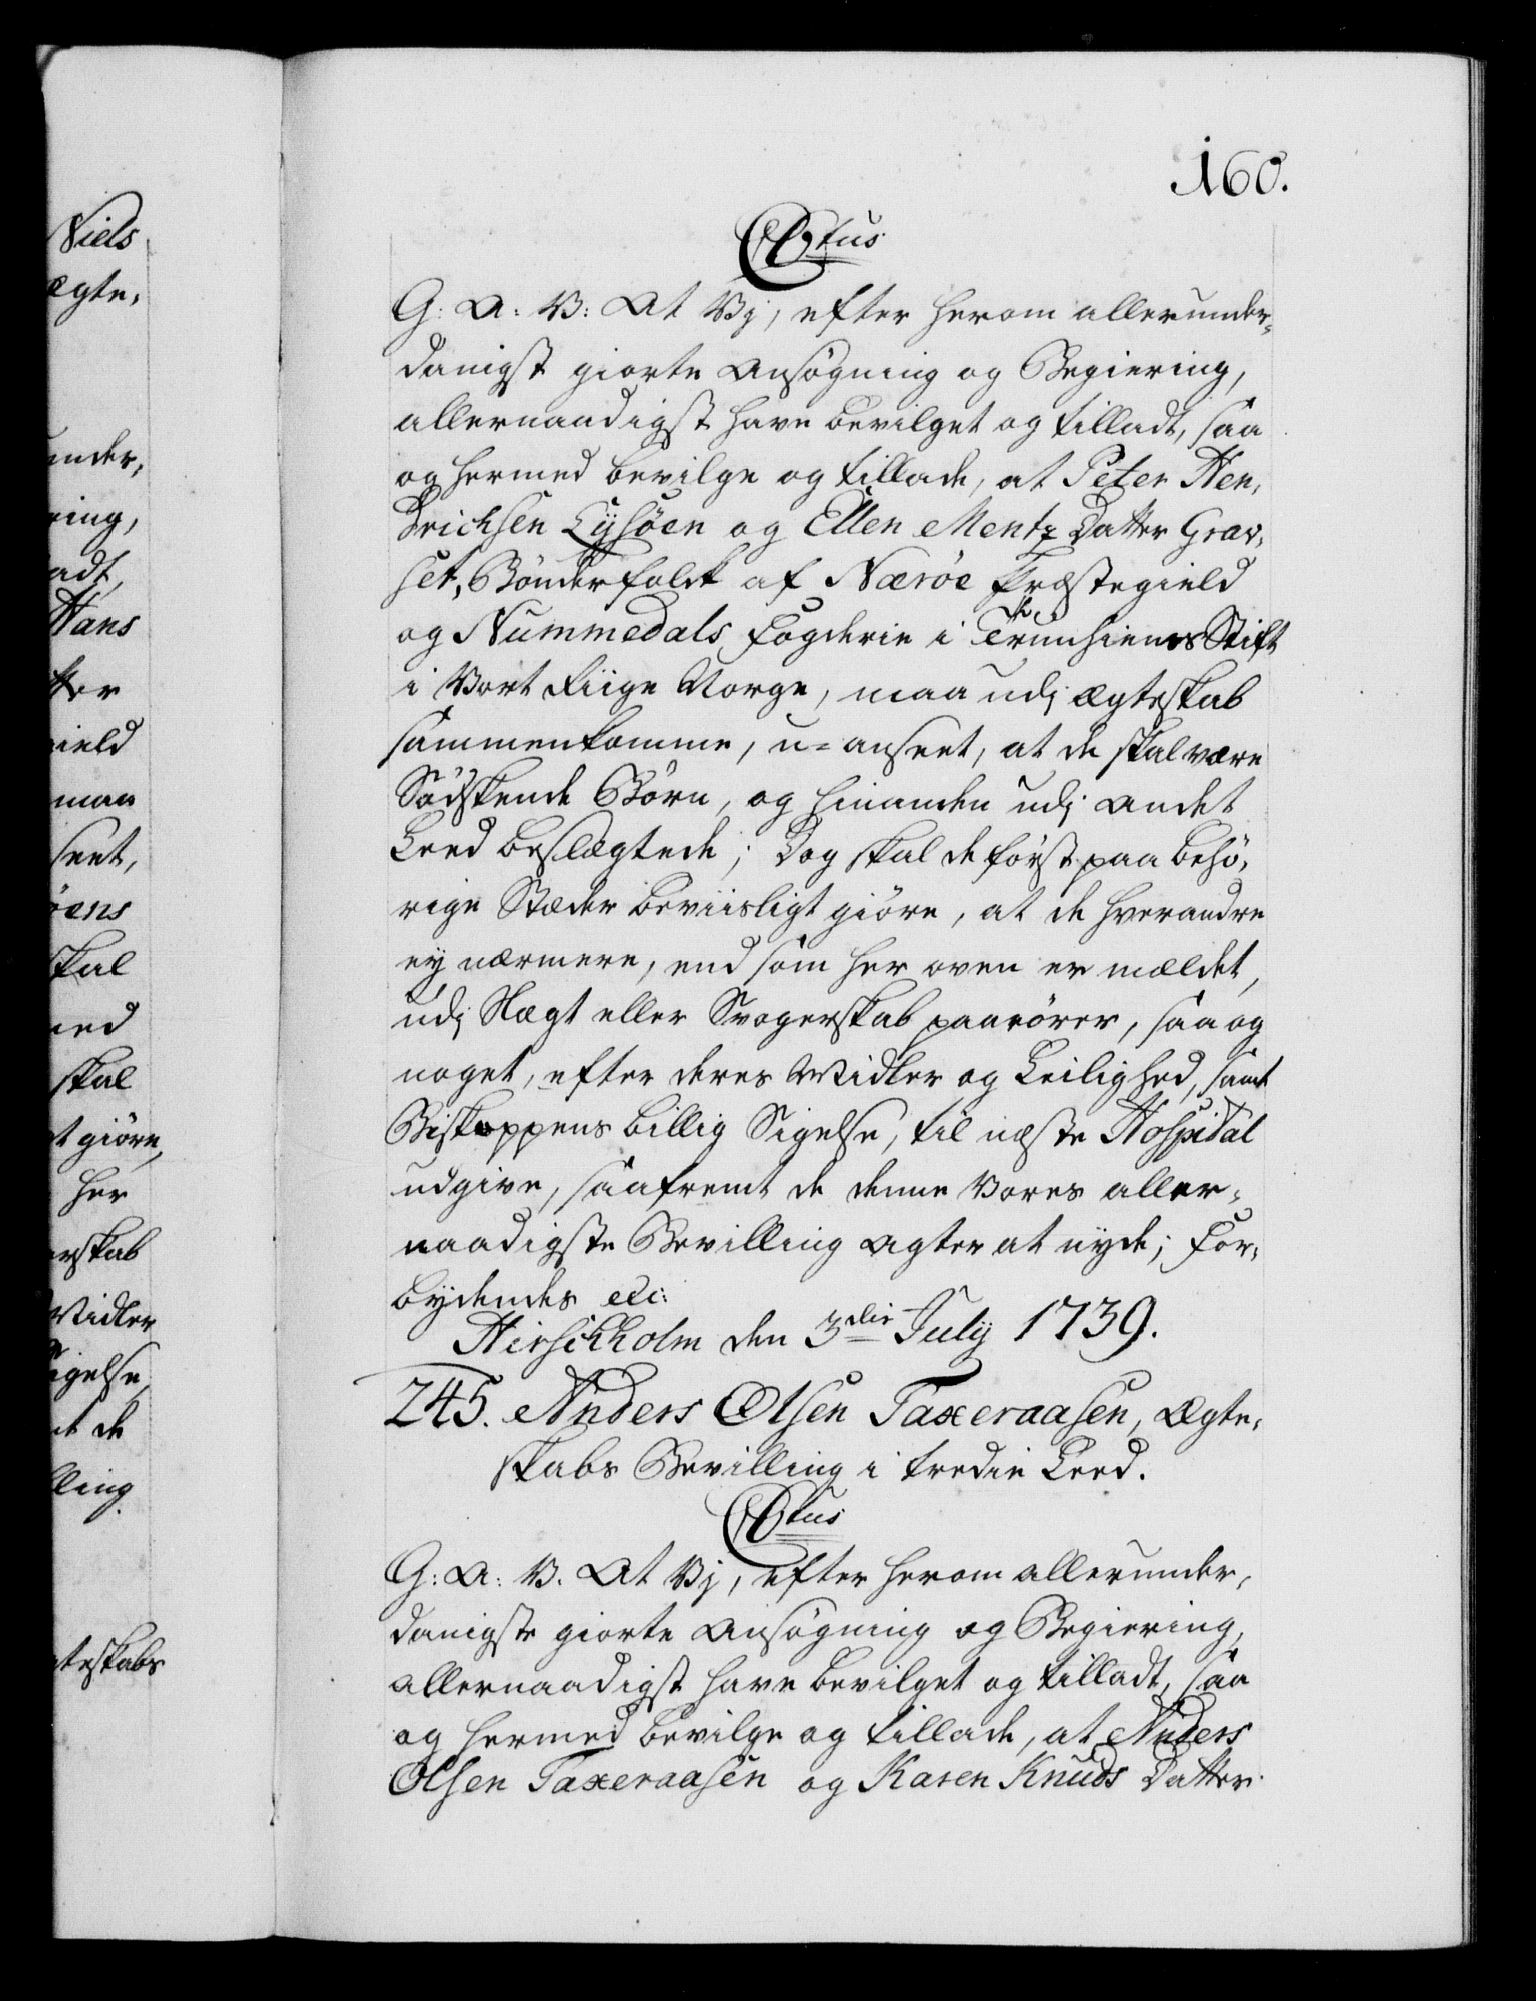 160.
C6tus
G: A: V: At Vj, efter herom allerunder-
danigst giorte Ansøgning og Begiering,
allernaadigst have bevilget og tilladt, saa
og hermed bevilge og tillade, at Peter Hen-
drichsen Lysøen og Ellen Mentz Datter Grav-
set, Bønderfolck af Nærøe Præstegield
og Nummedals Fogderie i Trundhiems Stift
i Vort Riige Norge, maa udj ægteskab
sammenkomme, u-anseet, at de skal være
Sødskende Børn, og hinanden udj andet
Leed beslægtede; Dog skal de først paa behø-
rige Stæder beviisligt giøre, at de hverandre
ey nærmere, end som her oven er mældet,
udj Slægt eller Svogerskab paarører, saa og
noget, efter deres Midler og Leilighed, samt
Biskoppens billig Sigelse, til næste Hospital
udgive, saafremt de denne Vores aller-
naadigste Bevilling agter at nyde; For-
bydendes etc:
Hirschholm den 3die July 1739.
245. Anders Olsen Taxeraasen, Ægte-
skabs Bevilling i tredie Leed.
C6tus
G: A: V. At Vj, efter herom allerunder-
danigste giorte Ansøgning og Begiering,
allernaadigst have bevilget og tilladt, saa
og hermed bevilge og tillade, at Anders
Olsen Taxeraasen og Karen Knuds Datter
Niels
ægte-
under-
ring,
adt,
Hans
tter
gield
maa
seet,
øens
skal
ned
skal
t giøre,
her
erskab
Midler
Sigelse
nt de
lling
gteskabs